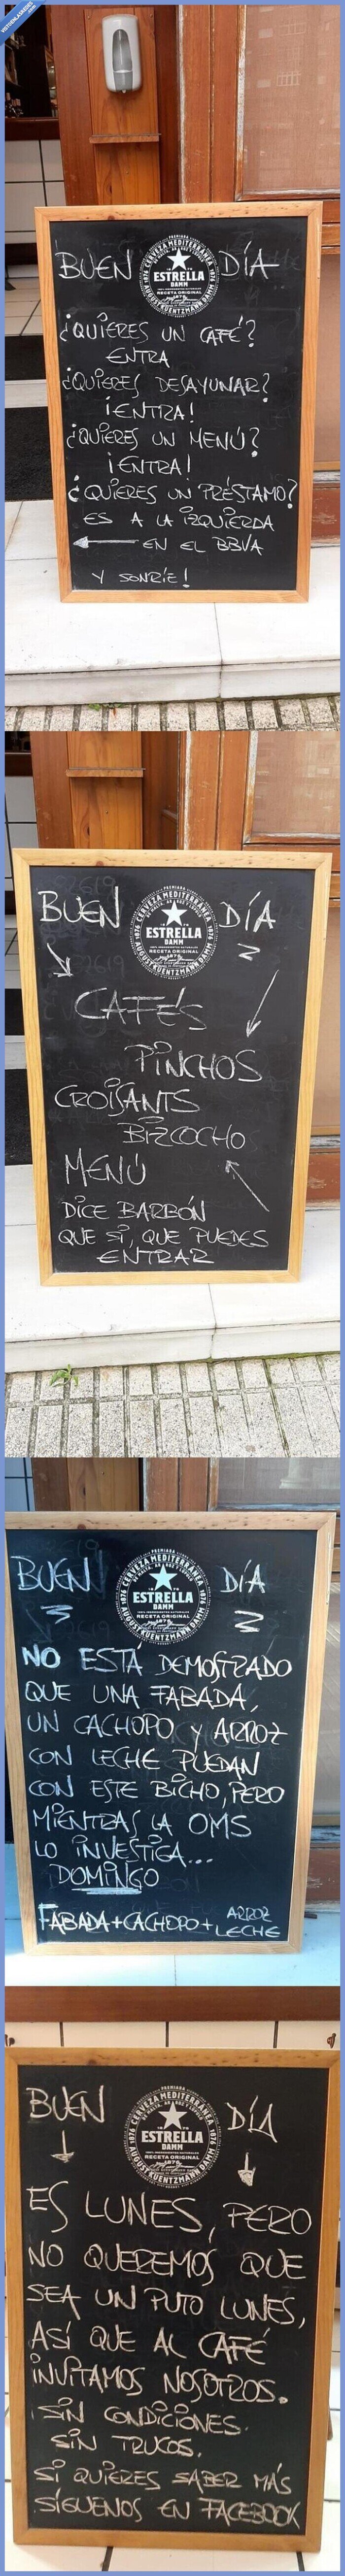 VISTOENLASREDES
.com
BUEN DÍA
PREMIADA
CERVEZA MEDITERRÁNEA
1876
ESTRELLA
DAMM
100% INGREDIENTES NATURALES
RECETA ORIGINAL
1876
AUGUST KUENTZMANN DAMM
¿QUIERES UN CAFÉ?
ENTRA
¿QUIERES DESAYUNAR?
¡ENTRA!
¿QUIERES UN MENÚ?
¡ENTRA!
¿QUIERES UN PRÉSTAMO?
ES A LA IZQUIERDA
EN EL BBVA
Y SONRÍE!
BUEN DÍA
PREMIADA
CERVEZA MEDITERRÁNEA
1876
ESTRELLA
DAMM
100% INGREDIENTES NATURALES
RECETA ORIGINAL
1876
AUGUST KUENTZMANN DAMM
CAFÉS
PINCHOS
CROISANTS
BIZCOCHO
MENÚ
DICE BARBÓN
QUE SÍ, QUE PUEDES
ENTRAR
BUEN DÍA
PREMIADA
CERVEZA MEDITERRÁNEA
1876
ESTRELLA
DAMM
100% INGREDIENTES NATURALES
RECETA ORIGINAL
1876
AUGUST KUENTZMANN DAMM
NO ESTÁ DEMOSTRADO
QUE UNA FABADA,
UN CACHOPO Y ARROZ
CON LECHE PUEDAN
CON ESTE BICHO, PERO
MIENTRAS LA OMS
LO INVESTIGA...
DOMINGO
FABADA+CACHOPO+ ARROZ
LECHE
BUEN DÍA
PREMIADA
CERVEZA MEDITERRÁNEA
1876
ESTRELLA
DAMM
100% INGREDIENTES NATURALES
RECETA ORIGINAL
1876
AUGUST KUENTZMANN DAMM
ES LUNES, PERO
NO QUEREMOS QUE
SEA UN PUTO LUNES,
ASÍ QUE AL CAFÉ
INVITAMOS NOSOTROS.
SIN CONDICIONES.
SIN TRUCOS.
SI QUIERES SABER MÁS
SÍGUENOS EN FACEBOOK